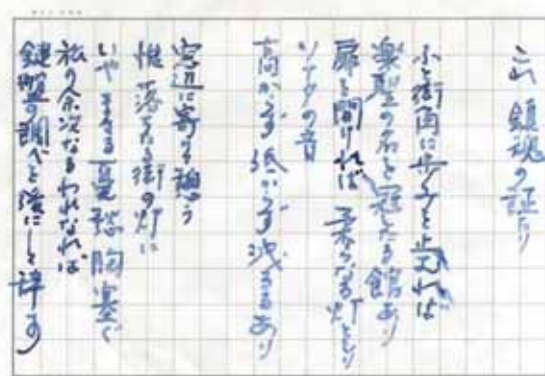 これ鎮魂の証たり
ふと街角に歩みを止むれば
楽聖の名を冠たる館あり
扉を開ければ 柔らなる灯ともり
ソナタの音
高からず低からず洩るるあり
窓辺に寄りて憩う
惟 落ちたる街の灯に
いやまさる 胸塞ぐ
私の余次なるわれなれば
鍵盤の調べを後にしを辞す